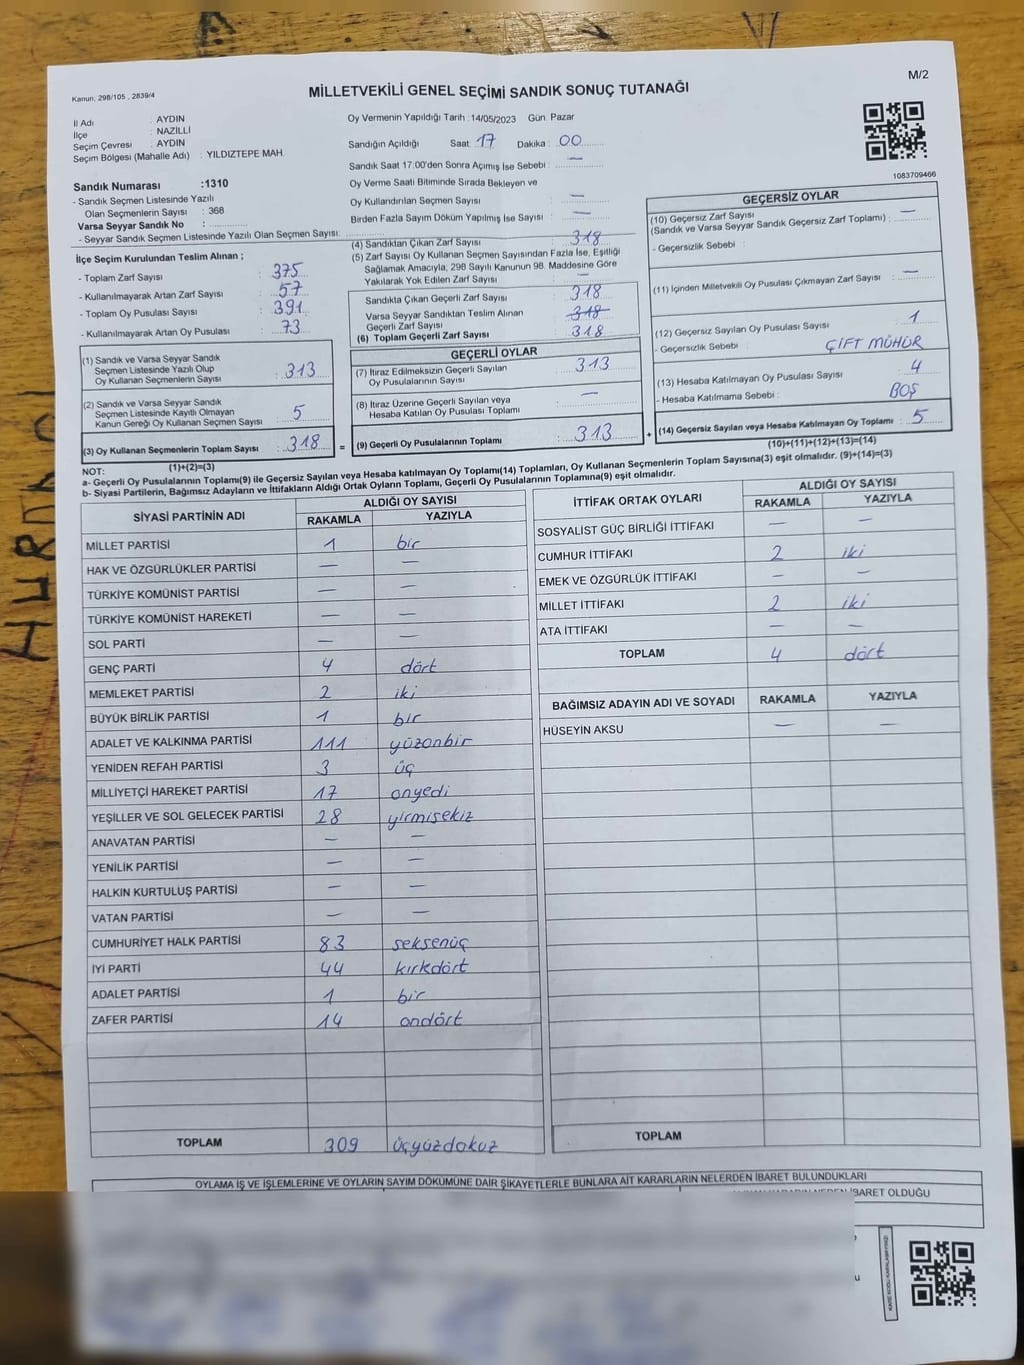 M/2
Kanun, 298/105 , 2839/4
MİLLETVEKİLİ GENEL SEÇİMİ SANDIK SONUÇ TUTANAĞI
İl Adı : AYDIN
İlçe : NAZİLLİ
Seçim Çevresi : AYDIN
Seçim Bölgesi (Mahalle Adı) : YILDIZTEPE MAH.
Oy Vermenin Yapıldığı Tarih : 14/05/2023 Gün: Pazar
Sandığın Açıldığı Saat: 17 Dakika : 00
Sandık Saat 17:00'den Sonra Açılmış İse Sebebi : —
Oy Verme Saati Bitiminde Sırada Bekleyen ve
Oy Kullandırılan Seçmen Sayısı : —
Birden Fazla Sayım Döküm Yapılmış İse Sayısı : —
1083709466
Sandık Numarası :1310
- Sandık Seçmen Listesinde Yazılı
Olan Seçmenlerin Sayısı : 368
Varsa Seyyar Sandık No :
- Seyyar Sandık Seçmen Listesinde Yazılı Olan Seçmen Sayısı:
İlçe Seçim Kurulundan Teslim Alınan ;
- Toplam Zarf Sayısı : 375
- Kullanılmayarak Artan Zarf Sayısı : 57
- Toplam Oy Pusulası Sayısı : 391
- Kullanılmayarak Artan Oy Pusulası : 73
(1) Sandık ve Varsa Seyyar Sandık
Seçmen Listesinde Yazılı Olup
Oy Kullanan Seçmenlerin Sayısı : 313
(2) Sandık ve Varsa Seyyar Sandık
Seçmen Listesinde Kayıtlı Olmayan
Kanun Gereği Oy Kullanan Seçmen Sayısı : 5
(3) Oy Kullanan Seçmenlerin Toplam Sayısı : 318 =
(1)+(2)=(3)
(4) Sandıktan Çıkan Zarf Sayısı : 318
(5) Zarf Sayısı Oy Kullanan Seçmen Sayısından Fazla İse, Eşitliği
Sağlamak Amacıyla, 298 Sayılı Kanunun 98. Maddesine Göre
Yakılarak Yok Edilen Zarf Sayısı : —
Sandıkta Çıkan Geçerli Zarf Sayısı : 318
Varsa Seyyar Sandıktan Teslim Alınan
Geçerli Zarf Sayısı : 318
(6) Toplam Geçerli Zarf Sayısı : 318
GEÇERLİ OYLAR
(7) İtiraz Edilmeksizin Geçerli Sayılan
Oy Pusulalarının Sayısı : 313
(8) İtiraz Üzerine Geçerli Sayılan veya
Hesaba Katılan Oy Pusulası Toplamı : —
(9) Geçerli Oy Pusulalarının Toplamı : 313 +
GEÇERSİZ OYLAR
(10) Geçersiz Zarf Sayısı
(Sandık ve Varsa Seyyar Sandık Geçersiz Zarf Toplamı) : —
- Geçersizlik Sebebi :
(11) İçinden Milletvekili Oy Pusulası Çıkmayan Zarf Sayısı : —
(12) Geçersiz Sayılan Oy Pusulası Sayısı : 1
- Geçersizlik Sebebi : ÇİFT MÜHÜR
(13) Hesaba Katılmayan Oy Pusulası Sayısı : 4
- Hesaba Katılmama Sebebi : BOŞ
(14) Geçersiz Sayılan veya Hesaba Katılmayan Oy Toplamı : 5
(10)+(11)+(12)+(13)=(14)
NOT:
a- Geçerli Oy Pusulalarının Toplamı(9) ile Geçersiz Sayılan veya Hesaba katılmayan Oy Toplamı(14) Toplamları, Oy Kullanan Seçmenlerin Toplam Sayısına(3) eşit olmalıdır. (9)+(14)=(3)
b- Siyasi Partilerin, Bağımsız Adayların ve İttifakların Aldığı Ortak Oyların Toplamı, Geçerli Oy Pusulalarının Toplamına(9) eşit olmalıdır.
SİYASİ PARTİNİN ADI ALDIĞI OY SAYISI
RAKAMLA YAZIYLA
MİLLET PARTİSİ 1 bir
HAK VE ÖZGÜRLÜKLER PARTİSİ — —
TÜRKİYE KOMÜNİST PARTİSİ — —
TÜRKİYE KOMÜNİST HAREKETİ — —
SOL PARTİ — —
GENÇ PARTİ 4 dört
MEMLEKET PARTİSİ 2 iki
BÜYÜK BİRLİK PARTİSİ 1 bir
ADALET VE KALKINMA PARTİSİ 111 yüzonbir
YENİDEN REFAH PARTİSİ 3 üç
MİLLİYETÇİ HAREKET PARTİSİ 17 onyedi
YEŞİLLER VE SOL GELECEK PARTİSİ 28 yirmisekiz
ANAVATAN PARTİSİ — —
YENİLİK PARTİSİ — —
HALKIN KURTULUŞ PARTİSİ — —
VATAN PARTİSİ — —
CUMHURİYET HALK PARTİSİ 83 seksenüç
İYİ PARTİ 44 kırkdört
ADALET PARTİSİ 1 bir
ZAFER PARTİSİ 14 ondört
TOPLAM 309 üçyüzdokuz
İTTİFAK ORTAK OYLARI ALDIĞI OY SAYISI
RAKAMLA YAZIYLA
SOSYALİST GÜÇ BİRLİĞİ İTTİFAKI — —
CUMHUR İTTİFAKI 2 iki
EMEK VE ÖZGÜRLÜK İTTİFAKI — —
MİLLET İTTİFAKI 2 iki
ATA İTTİFAKI — —
TOPLAM 4 dört
BAĞIMSIZ ADAYIN ADI VE SOYADI RAKAMLA YAZIYLA
HÜSEYİN AKSU — —
TOPLAM
OYLAMA İŞ VE İŞLEMLERİNE VE OYLARIN SAYIM DÖKÜMÜNE DAİR ŞİKAYETLERLE BUNLARA AİT KARARLARIN NELERDEN İBARET BULUNDUKLARI
İBARET OLDUĞU